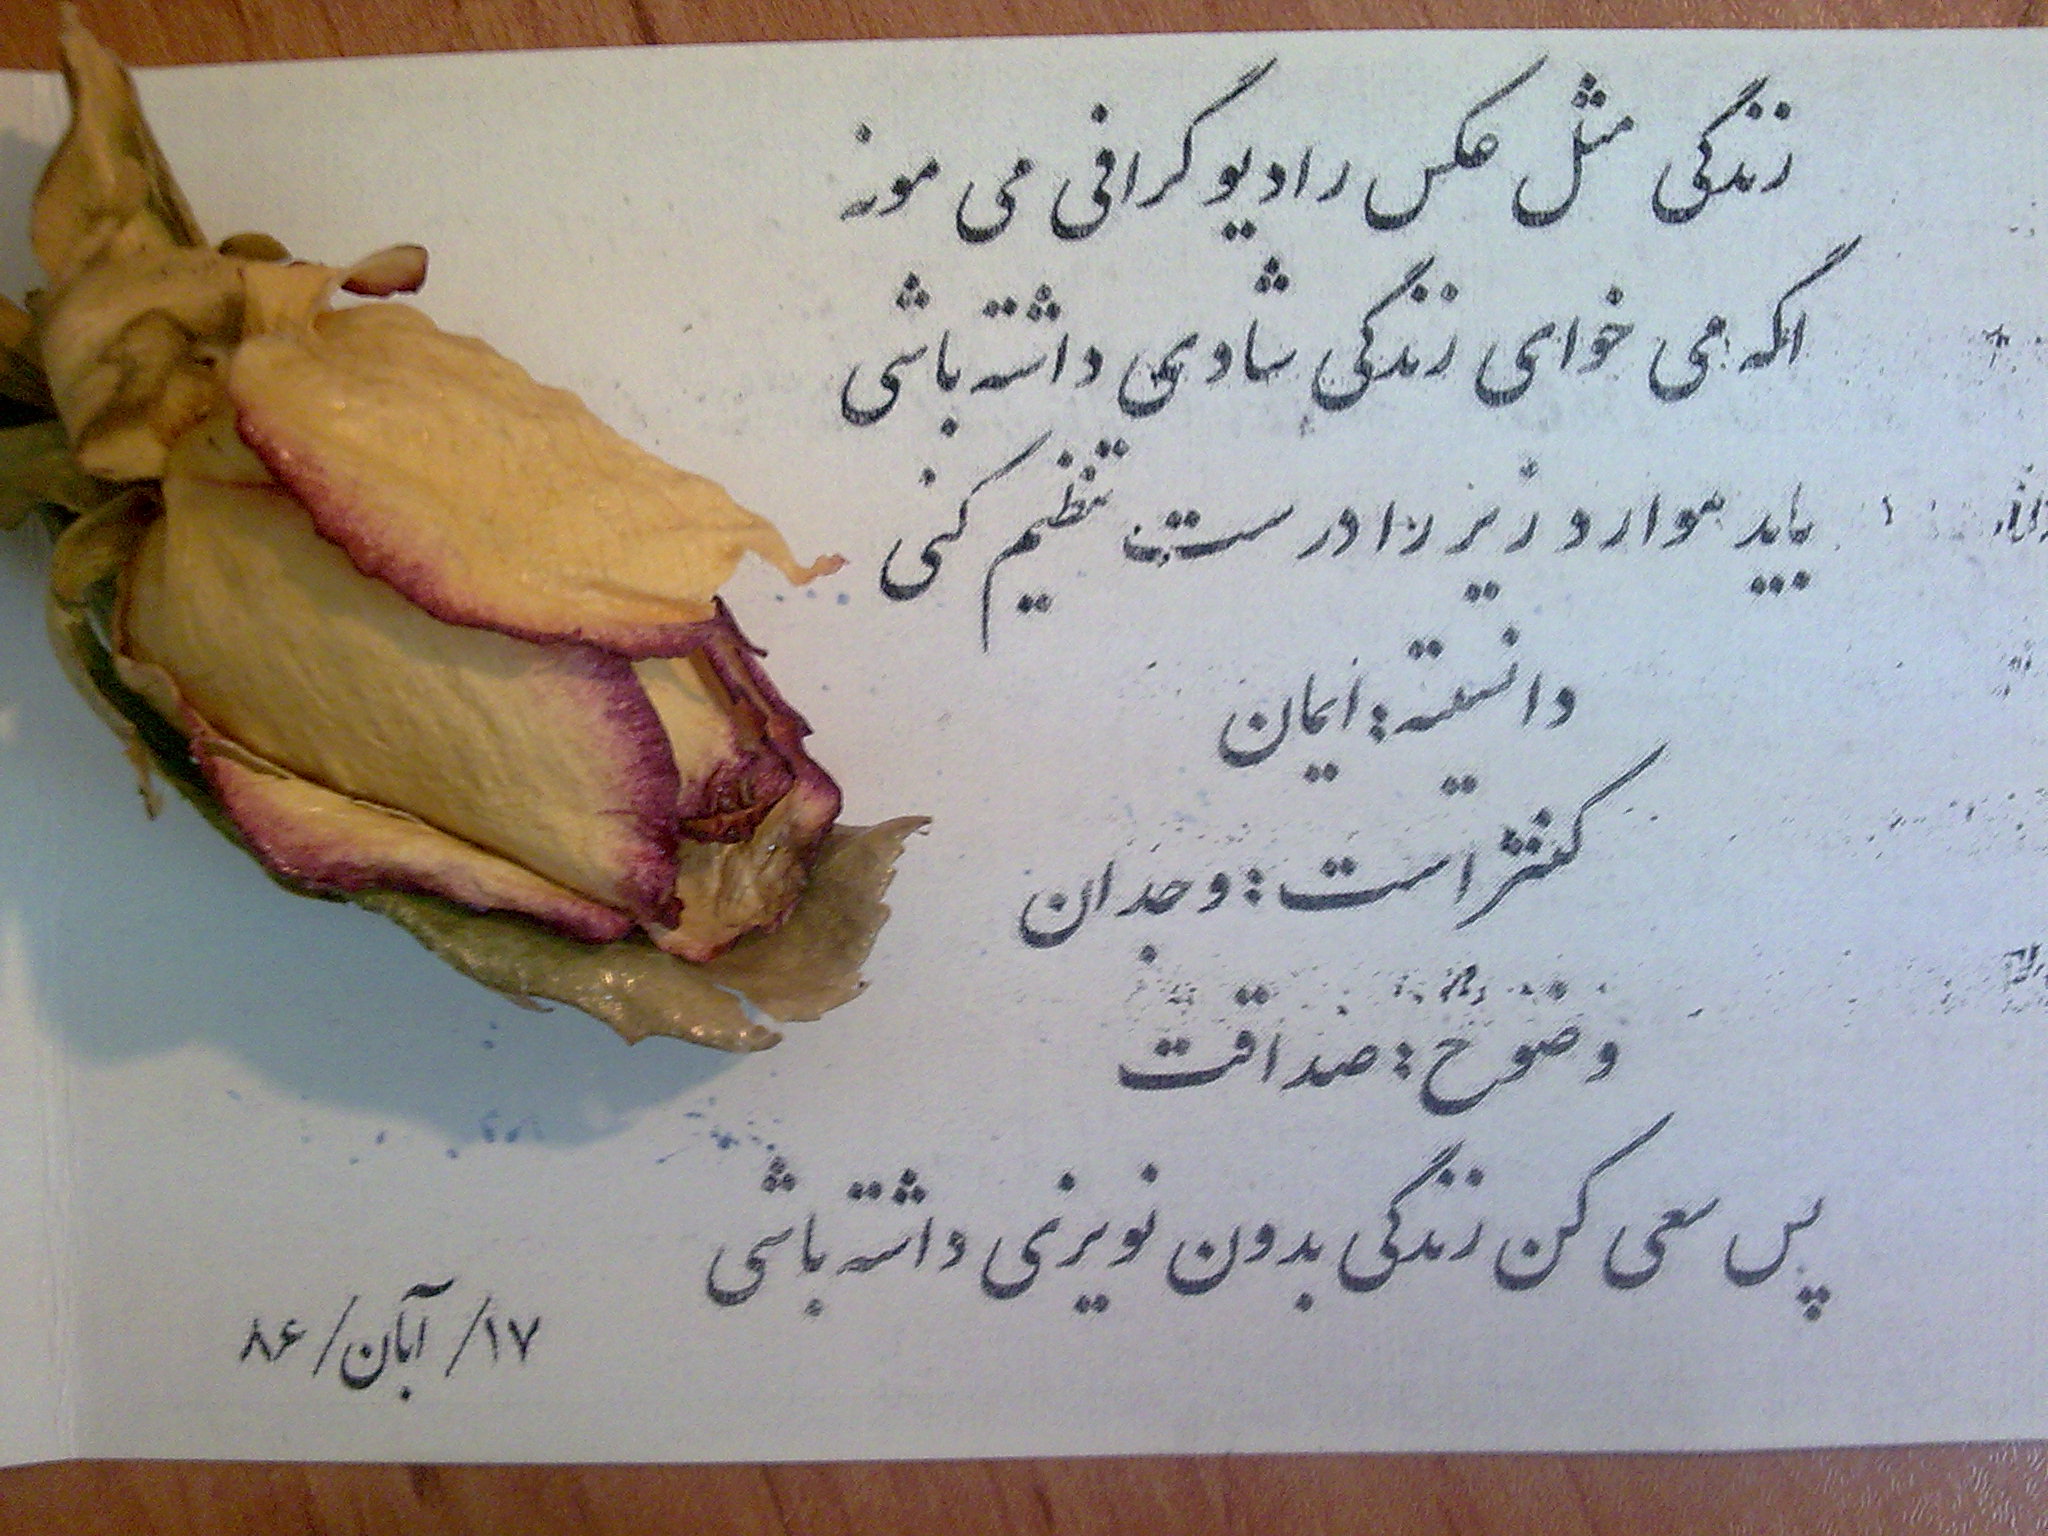 زندگی مثل عکس رادیو گرافی می مونه
اگه می خوای زندگی شادی داشته باشی
باید موارد زیر را درست تنظیم کنی
دانسیته: ایمان
کنتراست: وجدان
وضوح: صداقت
پس سعی کن زندگی بدون نویزی داشته باشی
۱۷/ آبان/ ۸۶